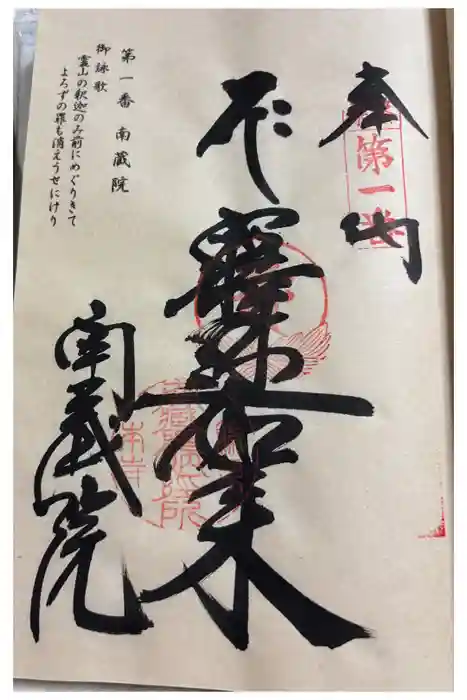 奉納
第一番
釋迦如来
南蔵院
第一番 南蔵院
御詠歌
靈山の釈迦のみ前にめぐりきて
よろずの罪も消えうせにけり